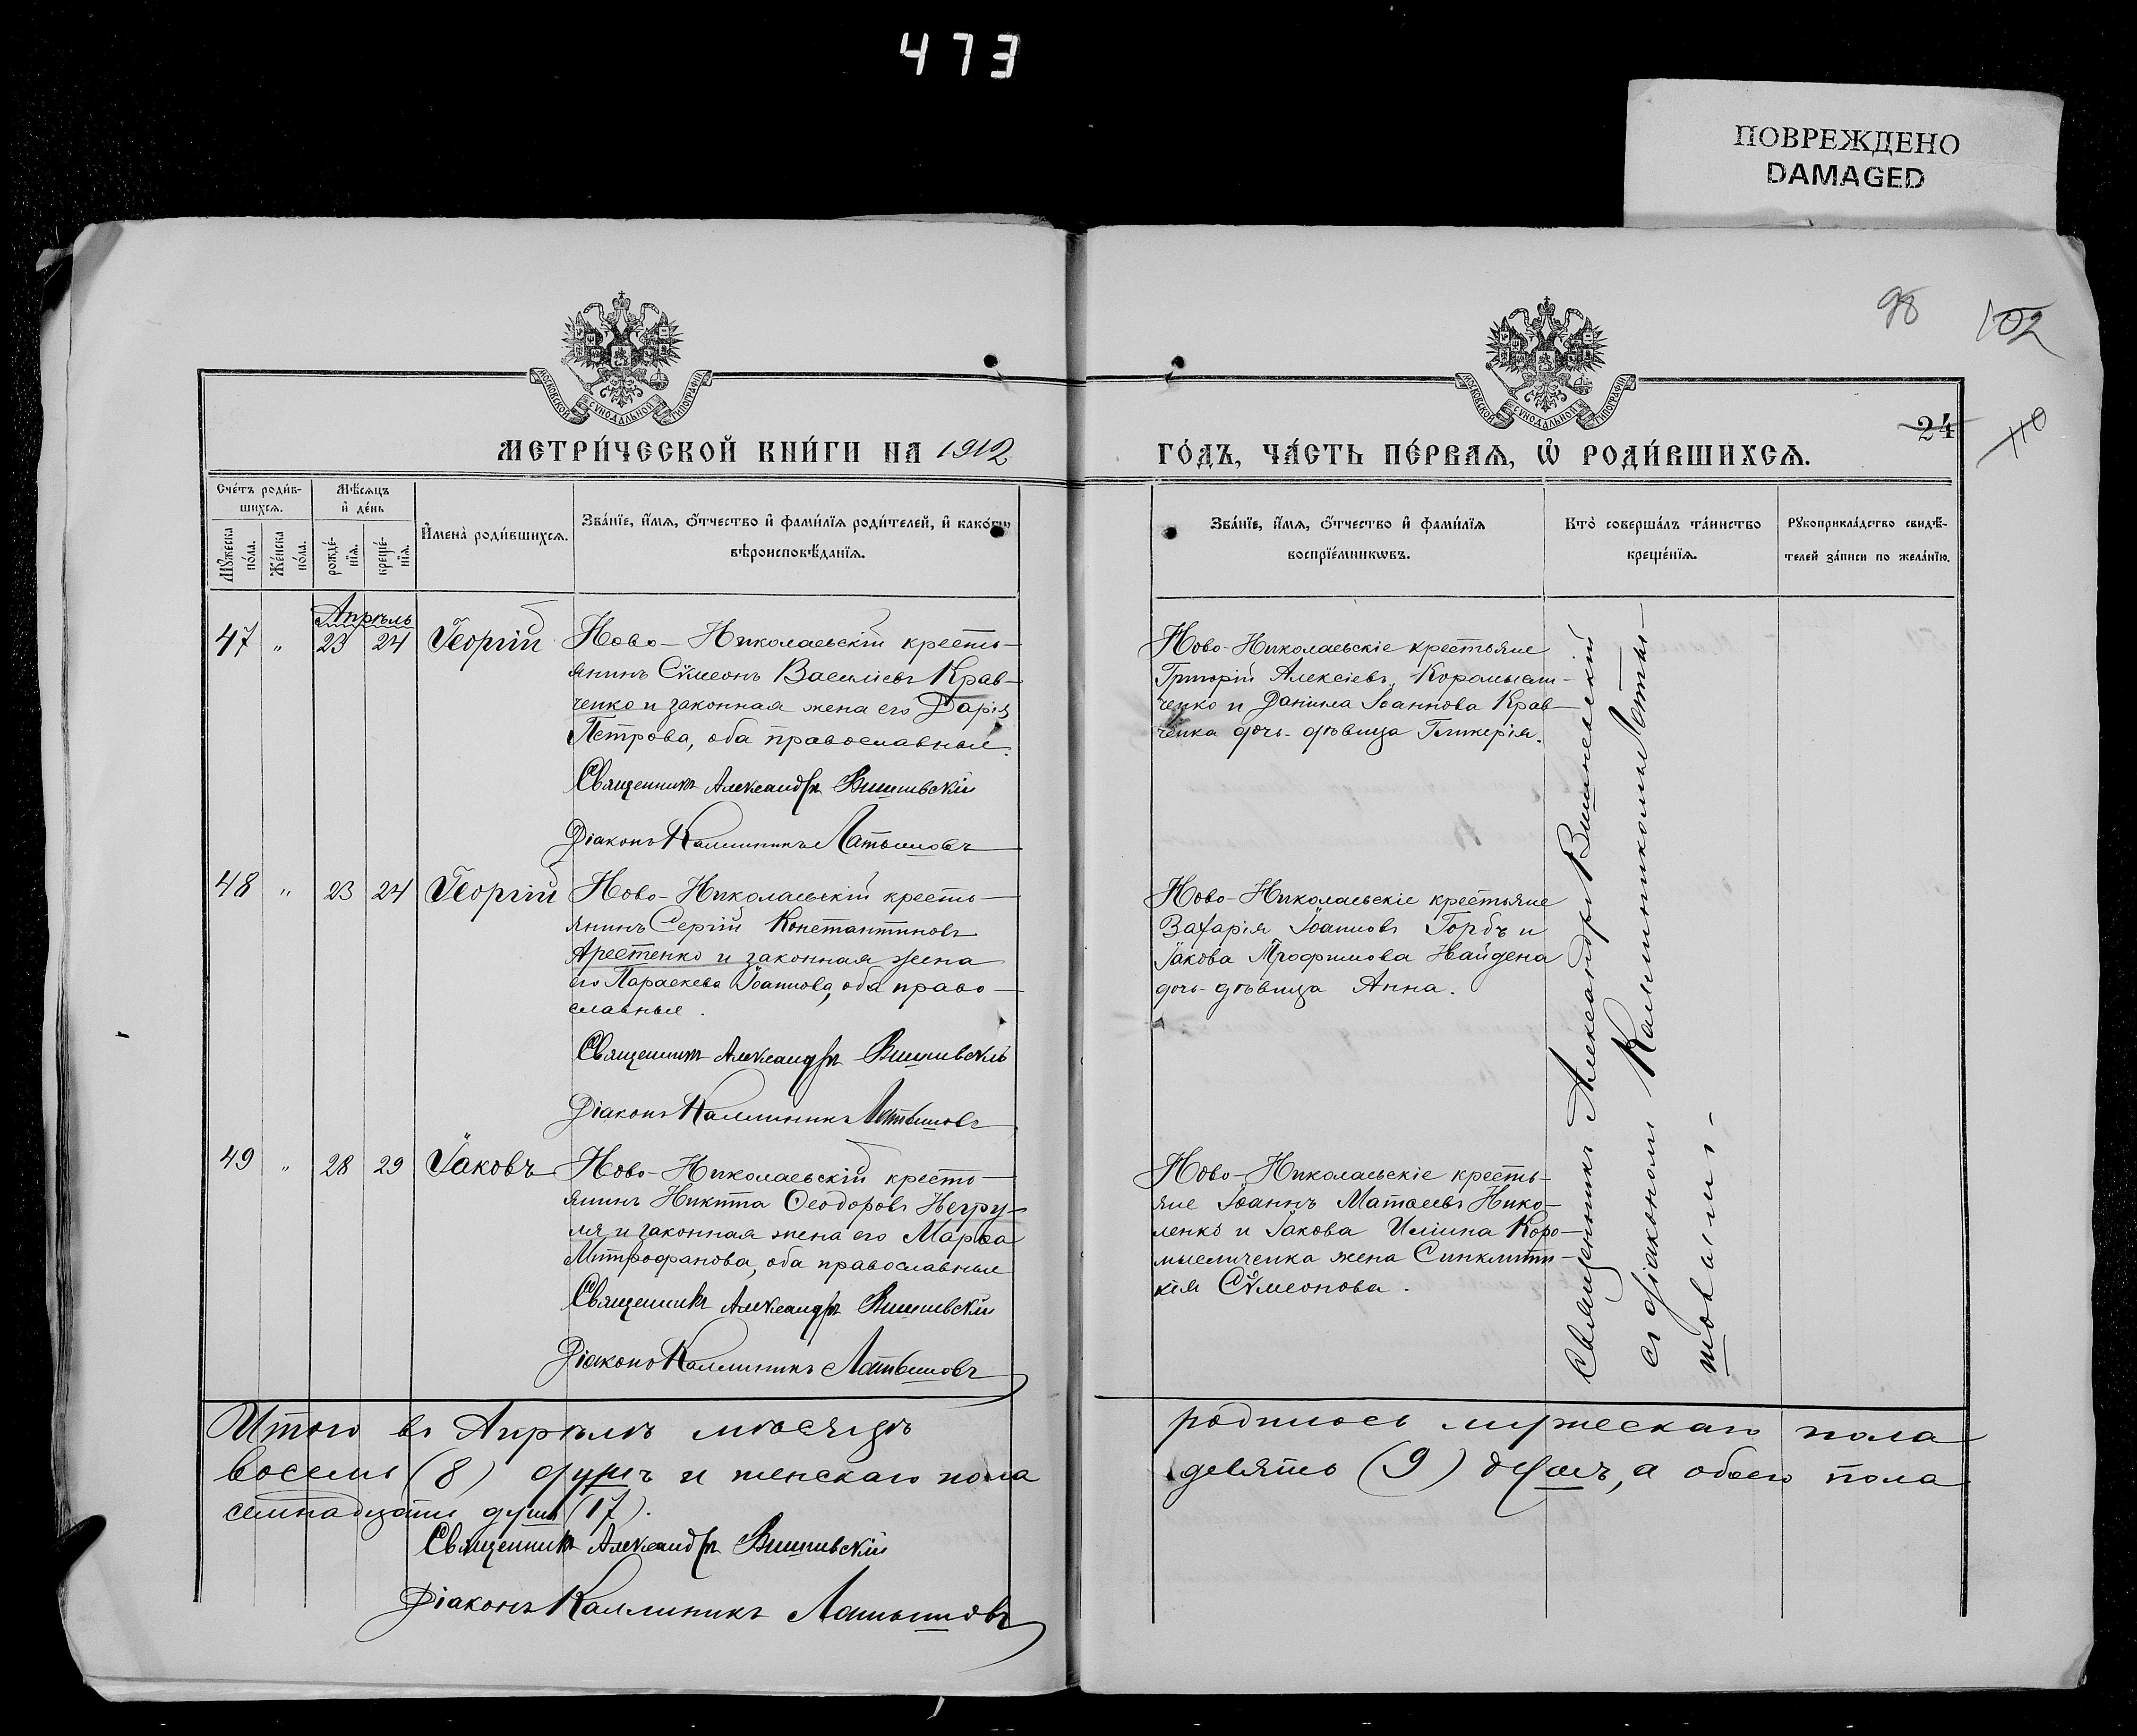 473
ПОВРЕЖДЕНО
DAMAGED
98
102
110
24
МОСКОВСКОЙ СУНОДАЛЬНОЙ ТИПОГРАФІИ
МОСКОВСКОЙ СУНОДАЛЬНОЙ ТИПОГРАФІИ
МЕТРИ́ЧЕСКОЙ КНИ́ГИ НА 1912
ГО́ДЪ, ЧА́СТЬ ПЕ́РВАѦ, Ѽ РОДИ́ВШИХСѦ.
Сче́тъ роди́в-
шихсѧ.
Мꙋжеска по́ла.
Же́нска по́ла.
Мѣ́сѧцъ
и҆ де́нь
рожде́-
нїѧ.
креще́-
нїѧ.
И҆мена̀ роди́вшихсѧ.
Зва́нїе, и҆́мѧ, ѻ҆́тчество и҆ фами́лїѧ роди́телей, и҆ како́гѡ
вѣроисповѣ́данїѧ.
Зва́нїе, и҆́мѧ, ѻ҆́тчество и҆ фами́лїѧ
воспрїе́мникѡвъ.
Кто̀ соверша́лъ та́инство
креще́нїѧ.
Рꙋкоприкла́дство свидѣ́-
телей за́писи по жела́нїю.
Апрѣль
47 " 23 24 Георгій
Ново-Николаевскій кресть-
янинъ Сѵмеонъ Василіевъ Крав-
ченко и законная жена его Дарія
Петрова, оба православные.
Священникъ Александръ Вишневскій
Діаконъ Каллиникъ Латышовъ
Ново-Николаевскіе крестьяне
Григорій Алексіевъ Коромысли-
ченко и Даніила Іоаннова Крав-
ченка дочь-дѣвица Гликерія.
48 " 23 24 Георгій
Ново-Николаевскій кресть-
янинъ Сергій Константиновъ
Арестенко и законная жена
его Параскева Іоаннова, оба право-
славные.
Священникъ Александръ Вишневскій
Діаконъ Каллиникъ Латышовъ
Ново-Николаевскіе крестьяне
Захарія Іоанновъ Горбъ и
Іакова Трофимова Найдена
дочь-дѣвица Анна.
49 " 28 29 Іаковъ
Ново-Николаевскій кресть-
янинъ Никита Ѳеодоровъ Негру-
ля и законная жена его Марѳа
Митрофанова, оба православные
Священникъ Александръ Вишневскій
Діаконъ Каллиникъ Латышовъ
Ново-Николаевскіе кресть-
яне Іоаннъ Матѳеевъ Нико-
ленко и Іакова Иліина Коро-
мысличенка жена Синклити-
кія Сѵмеонова.
Священникъ Александръ Вишневскій
съ діакономъ Каллиникомъ Латы-
шовымъ-
Итого въ Апрѣлѣ мѣсяцѣ родилось мужескаго пола
восемь (8) душъ и женскаго пола девять (9) душъ, а обоего пола
семнадцать душъ (17).
Священникъ Александръ Вишневскій
Діаконъ Каллиникъ Латышовъ